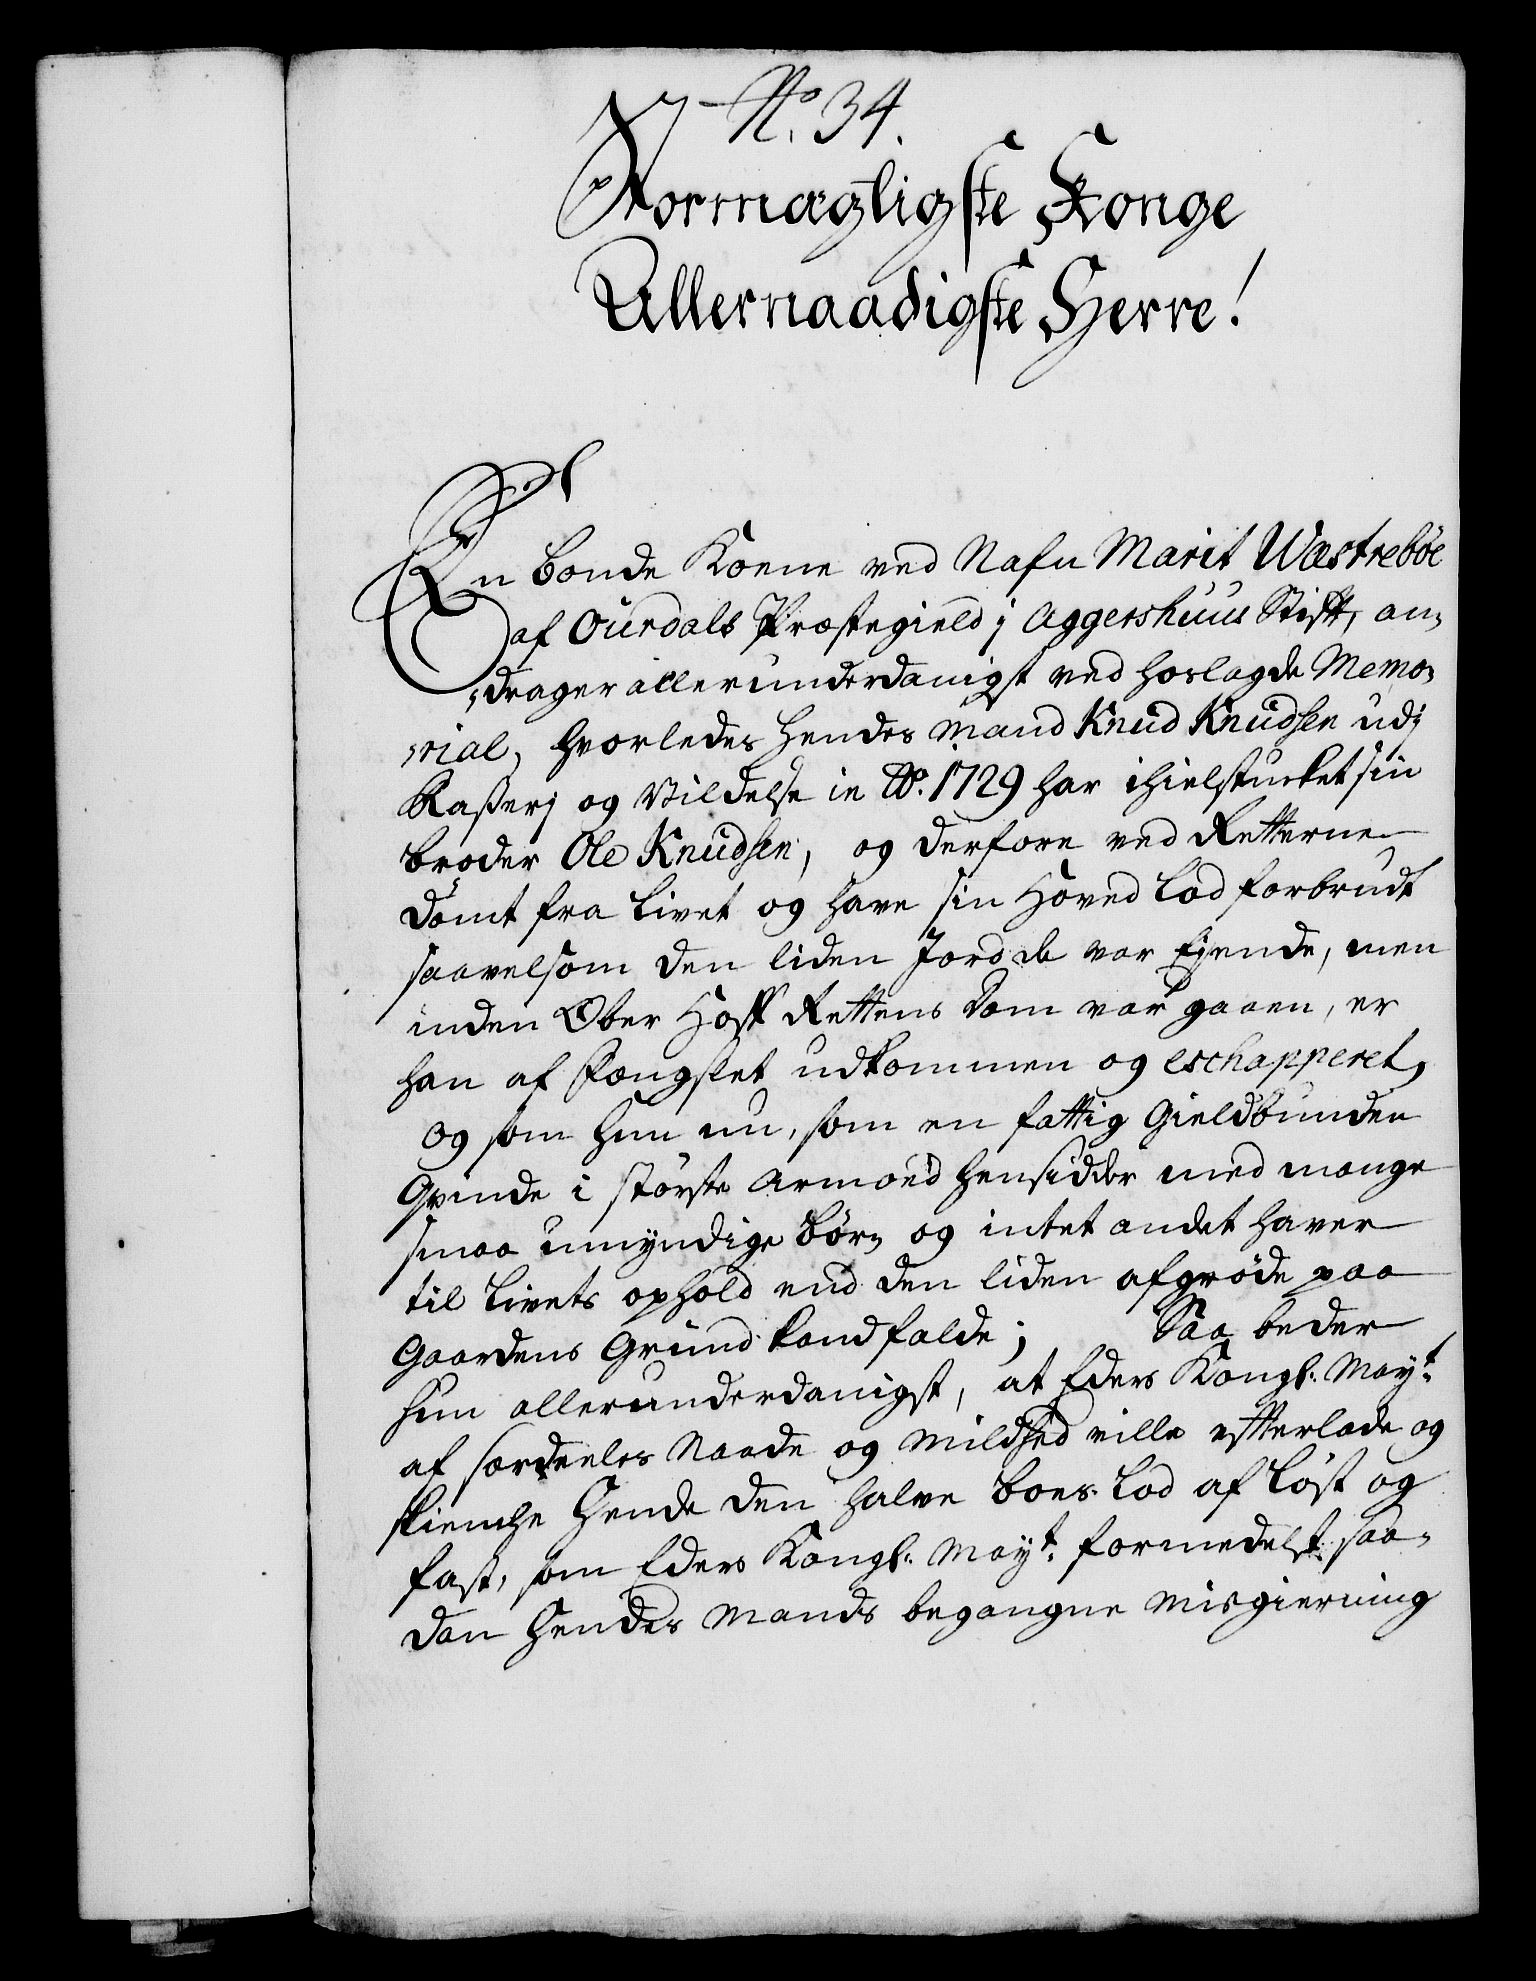 No. 34.
Stormægtigste Konge
Allernaadigste Herre!
En bonde Koene ved Nafn Marit Wæstrebøe
af Ourdals Præstegield j Aggershuus Stift, an-
drager allerunderdanigst ved hoslagde Memo-
rial, hvorledes hendes mand Knud Knudsen udj
Raßerj og Vildelse in Ao. 1729 har ihielstucket sin
broder Ole Knudsen, og derfore ved Retterne
dömt fra livet og have sin Hoved lod forbrudt
saavelsom den liden Jord de var Ejende, men
inden Ober Hoff Rettens dom var gaaen, er
han af Fængslet udkommen og eschapperet,
og som hun nu, som en fattig Gieldbunden
Qvinde i störste armoed hensidder med mange
smaa umyndige börn og intet andet haver
til livets ophold end den liden afgröde paa
Gaardens Grund kand falde; Saa beder
hun allerunderdanigst, at Eders Kongl: Mayt.
af særdeeles Naade og Mildhed ville efterlade og
skienche Hende den halve boes lod af löst og
fast, som Eders Kongl: Mayt. formedelst saa-
dan Hendes Mands begangne Misgierning